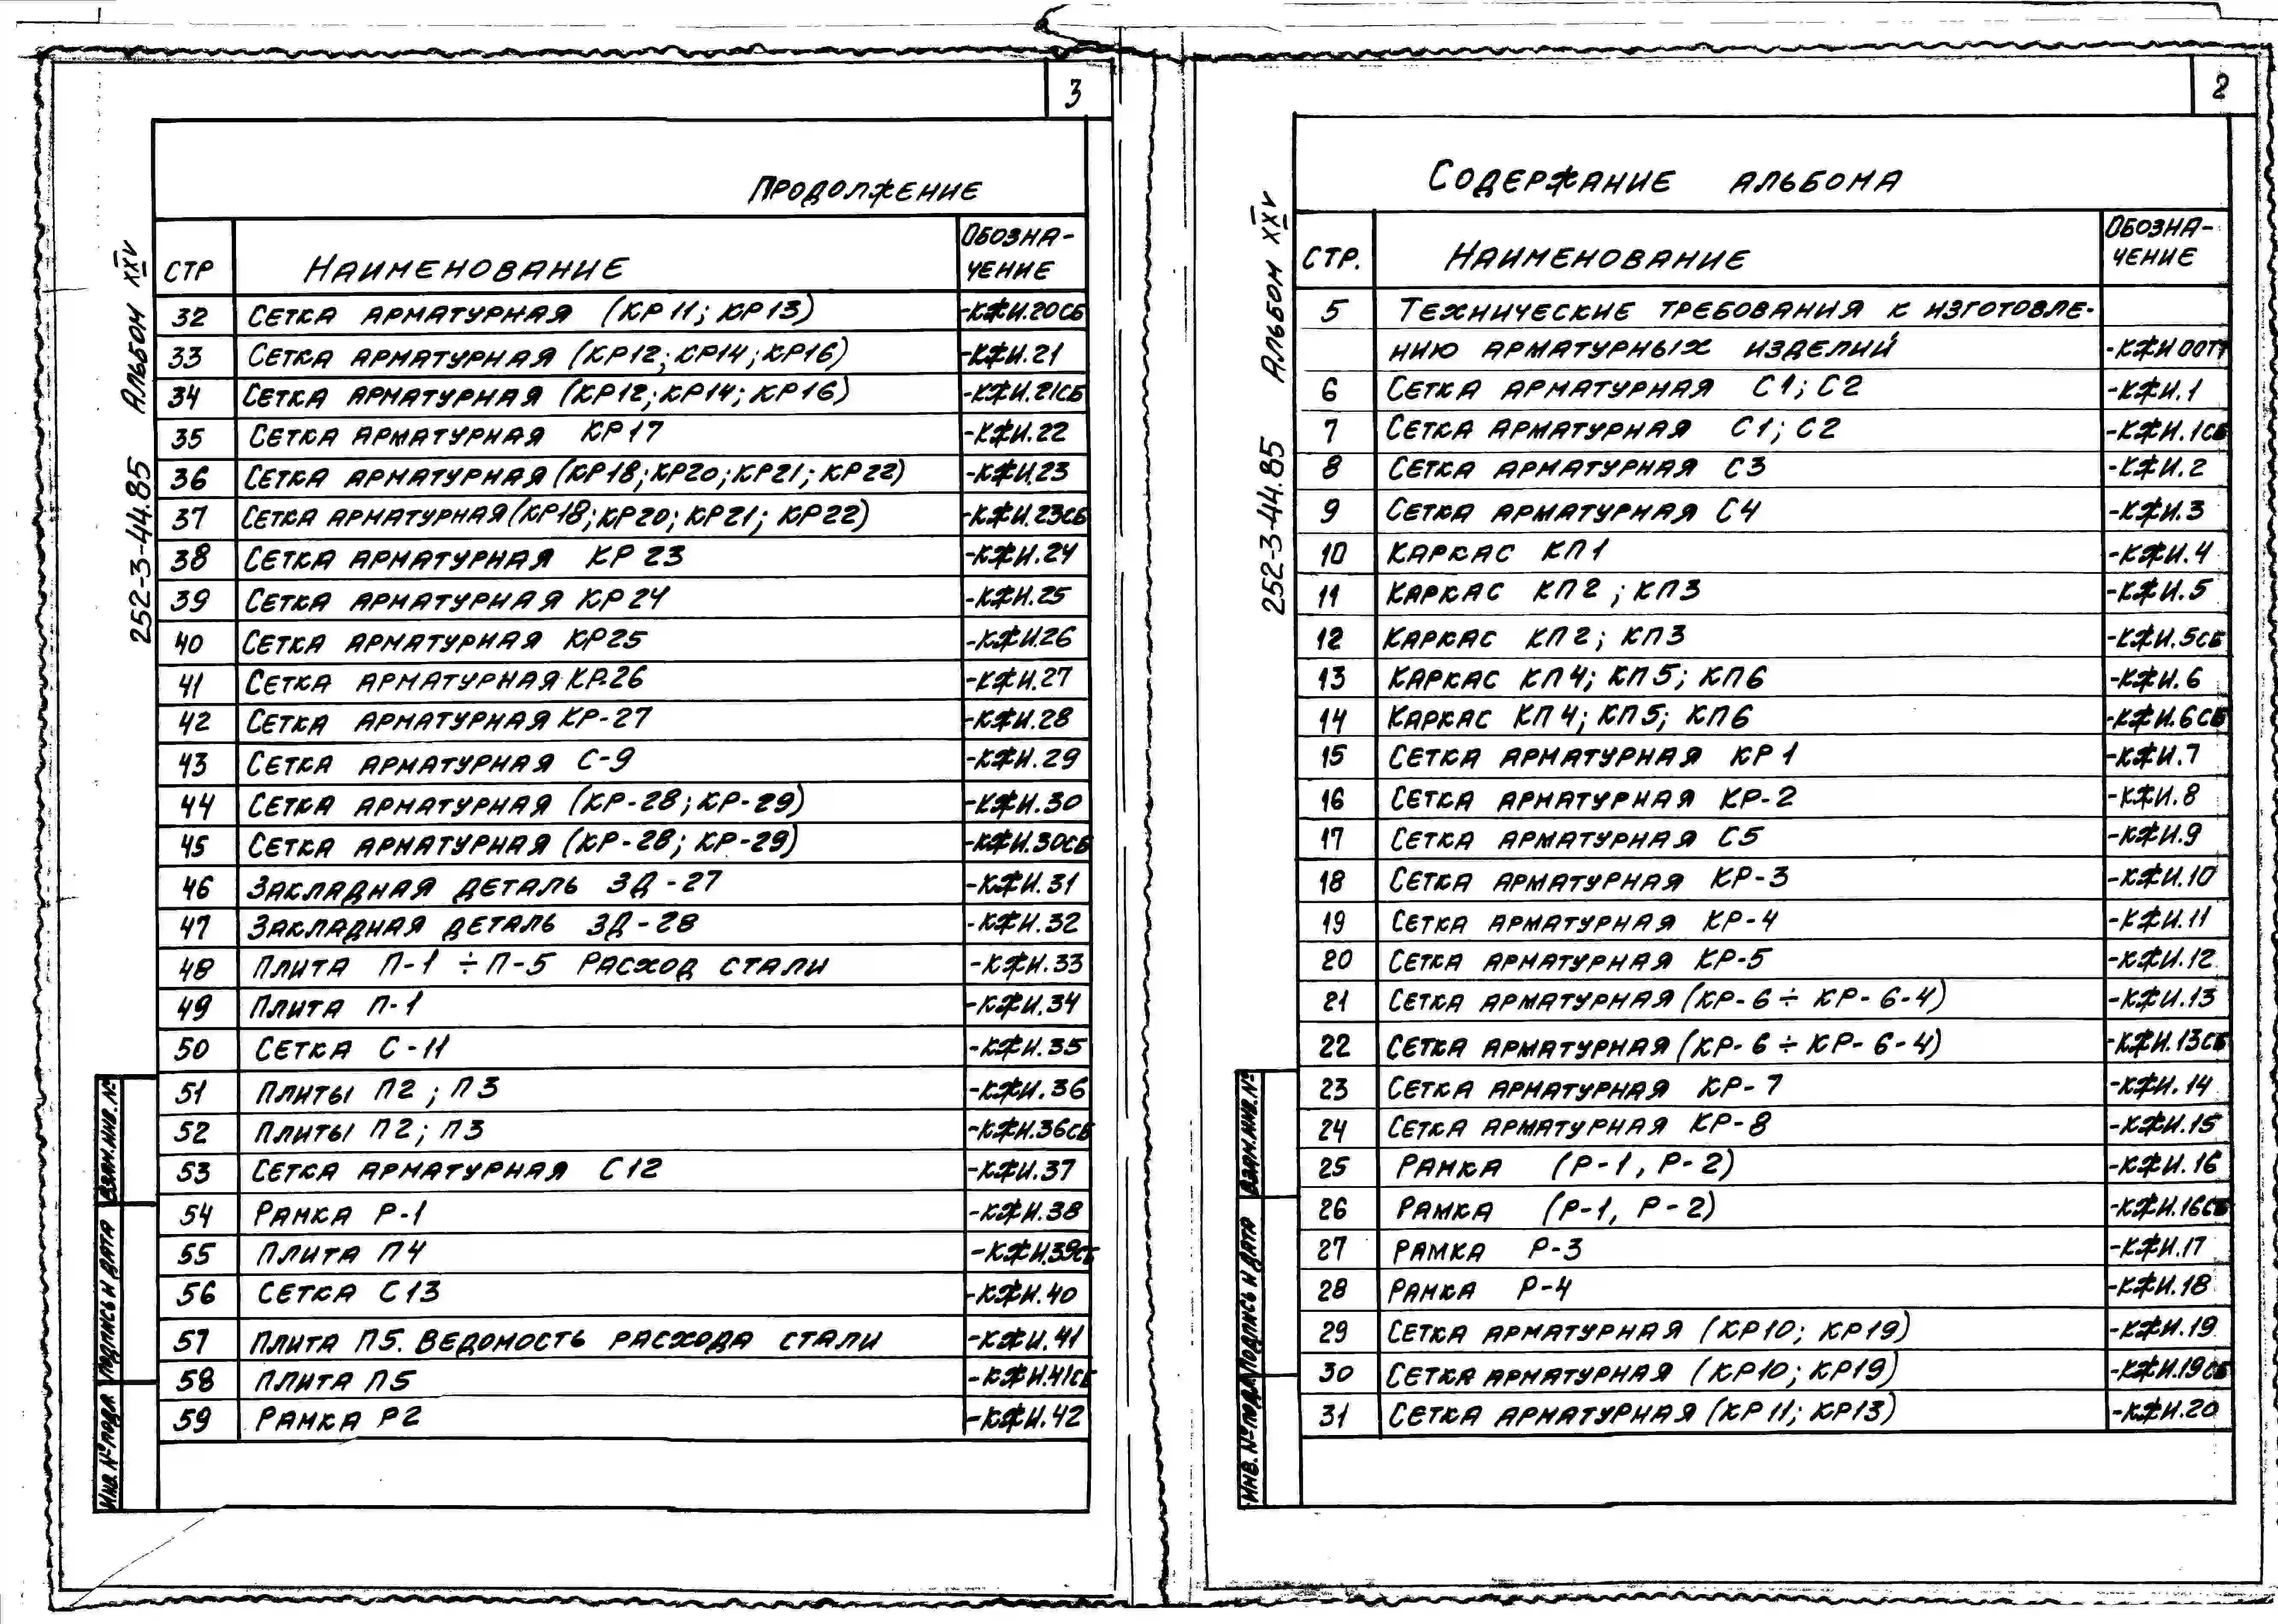 3
Продолжение
СТР Наименование Обозна-
чение
32 Сетка арматурная (КР11; КР13) -КЖИ.20СБ
33 Сетка арматурная (КР12; КР14; КР16) -КЖИ.21
34 Сетка арматурная (КР12; КР14; КР16) -КЖИ.21СБ
35 Сетка арматурная КР17 -КЖИ.22
36 Сетка арматурная (КР18; КР20; КР21; КР22) -КЖИ.23
37 Сетка арматурная (КР18; КР20; КР21; КР22) -КЖИ.23СБ
38 Сетка арматурная КР23 -КЖИ.24
39 Сетка арматурная КР24 -КЖИ.25
40 Сетка арматурная КР25 -КЖИ26
41 Сетка арматурная КР-26 -КЖИ.27
42 Сетка арматурная КР-27 -КЖИ.28
43 Сетка арматурная С-9 -КЖИ.29
44 Сетка арматурная (КР-28; КР-29) -КЖИ.30
45 Сетка арматурная (КР-28; КР-29) -КЖИ.30СБ
46 Закладная деталь ЗД-27 -КЖИ.31
47 Закладная деталь ЗД-28 -КЖИ.32
48 Плита П-1 ÷ П-5 Расход стали -КЖИ.33
49 Плита П-1 -КЖИ.34
50 Сетка С-11 -КЖИ.35
51 Плиты П2; П3 -КЖИ.36
52 Плиты П2; П3 -КЖИ.36СБ
53 Сетка арматурная С12 -КЖИ.37
54 Рамка Р-1 -КЖИ.38
55 Плита П4 -КЖИ.39СБ
56 Сетка С13 -КЖИ.40
57 Плита П5. Ведомость расхода стали -КЖИ.41
58 Плита П5 -КЖИ.41СБ
59 Рамка Р2 -КЖИ.42
252-3-44.85 Альбом XXV
Инв. № подл Подпись и дата Взам.инв.№
2
Содержание альбома
СТР. Наименование Обозна-
чение
5 Технические требования к изготовле-
нию арматурных изделий -КЖИ 00ТТ
6 Сетка арматурная С1; С2 -КЖИ.1
7 Сетка арматурная С1; С2 -КЖИ.1СБ
8 Сетка арматурная С3 -КЖИ.2
9 Сетка арматурная С4 -КЖИ.3
10 Каркас КП1 -КЖИ.4
11 Каркас КП2; КП3 -КЖИ.5
12 Каркас КП2; КП3 -КЖИ.5СБ
13 Каркас КП4; КП5; КП6 -КЖИ.6
14 Каркас КП4; КП5; КП6 -КЖИ.6СБ
15 Сетка арматурная КР1 -КЖИ.7
16 Сетка арматурная КР-2 -КЖИ.8
17 Сетка арматурная С5 -КЖИ.9
18 Сетка арматурная КР-3 -КЖИ.10
19 Сетка арматурная КР-4 -КЖИ.11
20 Сетка арматурная КР-5 -КЖИ.12
21 Сетка арматурная (КР-6 ÷ КР-6-4) -КЖИ.13
22 Сетка арматурная (КР-6 ÷ КР-6-4) -КЖИ.13СБ
23 Сетка арматурная КР-7 -КЖИ.14
24 Сетка арматурная КР-8 -КЖИ.15
25 Рамка (Р-1, Р-2) -КЖИ.16
26 Рамка (Р-1, Р-2) -КЖИ.16СБ
27 Рамка Р-3 -КЖИ.17
28 Рамка Р-4 -КЖИ.18
29 Сетка арматурная (КР10; КР19) -КЖИ.19
30 Сетка арматурная (КР10; КР19) -КЖИ.19СБ
31 Сетка арматурная (КР11; КР13) -КЖИ.20
252-3-44.85 Альбом XXV
Инв. № подл Подпись и дата Взам.инв.№